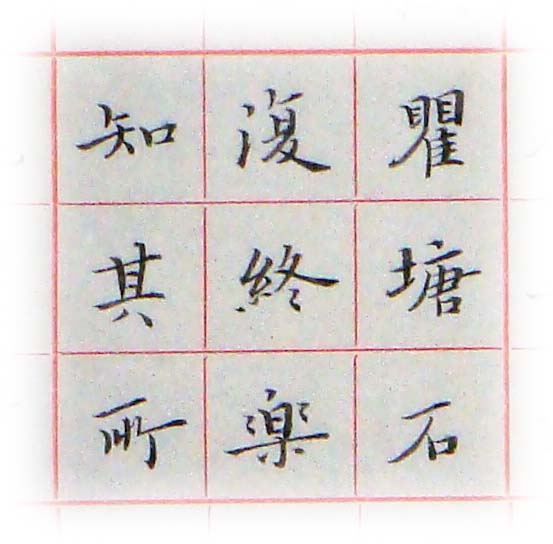 瞿塘石
復終楽
知其所